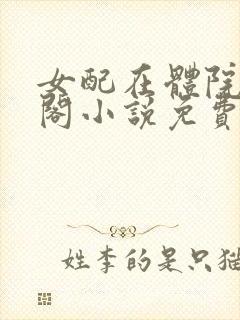 女配在體院
閣小説免費
姓李的是只猫